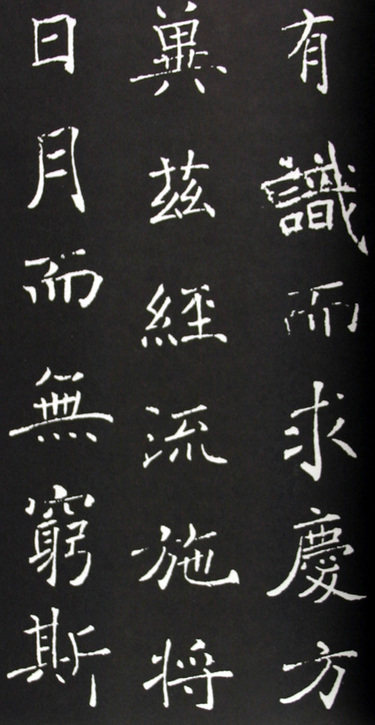 有識而求慶方
冀茲經流施將
日月而無窮斯